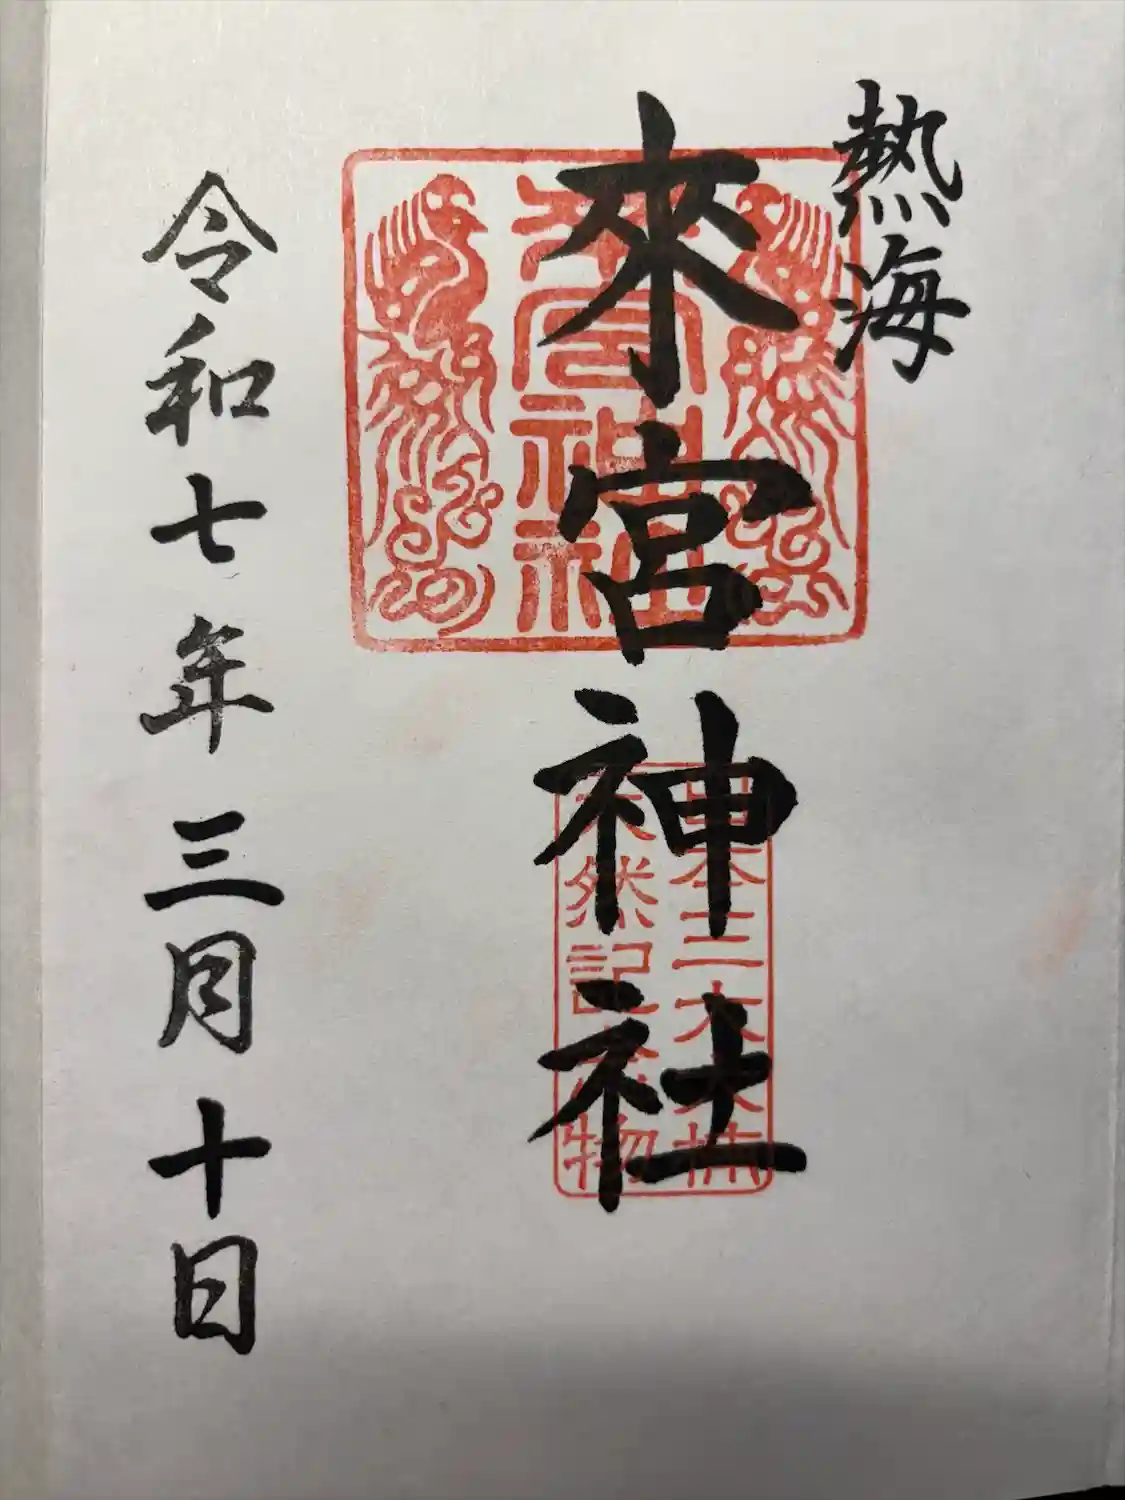 熱海
來宮神社
來宮神社
日本三大大楠
天然記念物
令和七年三月十日